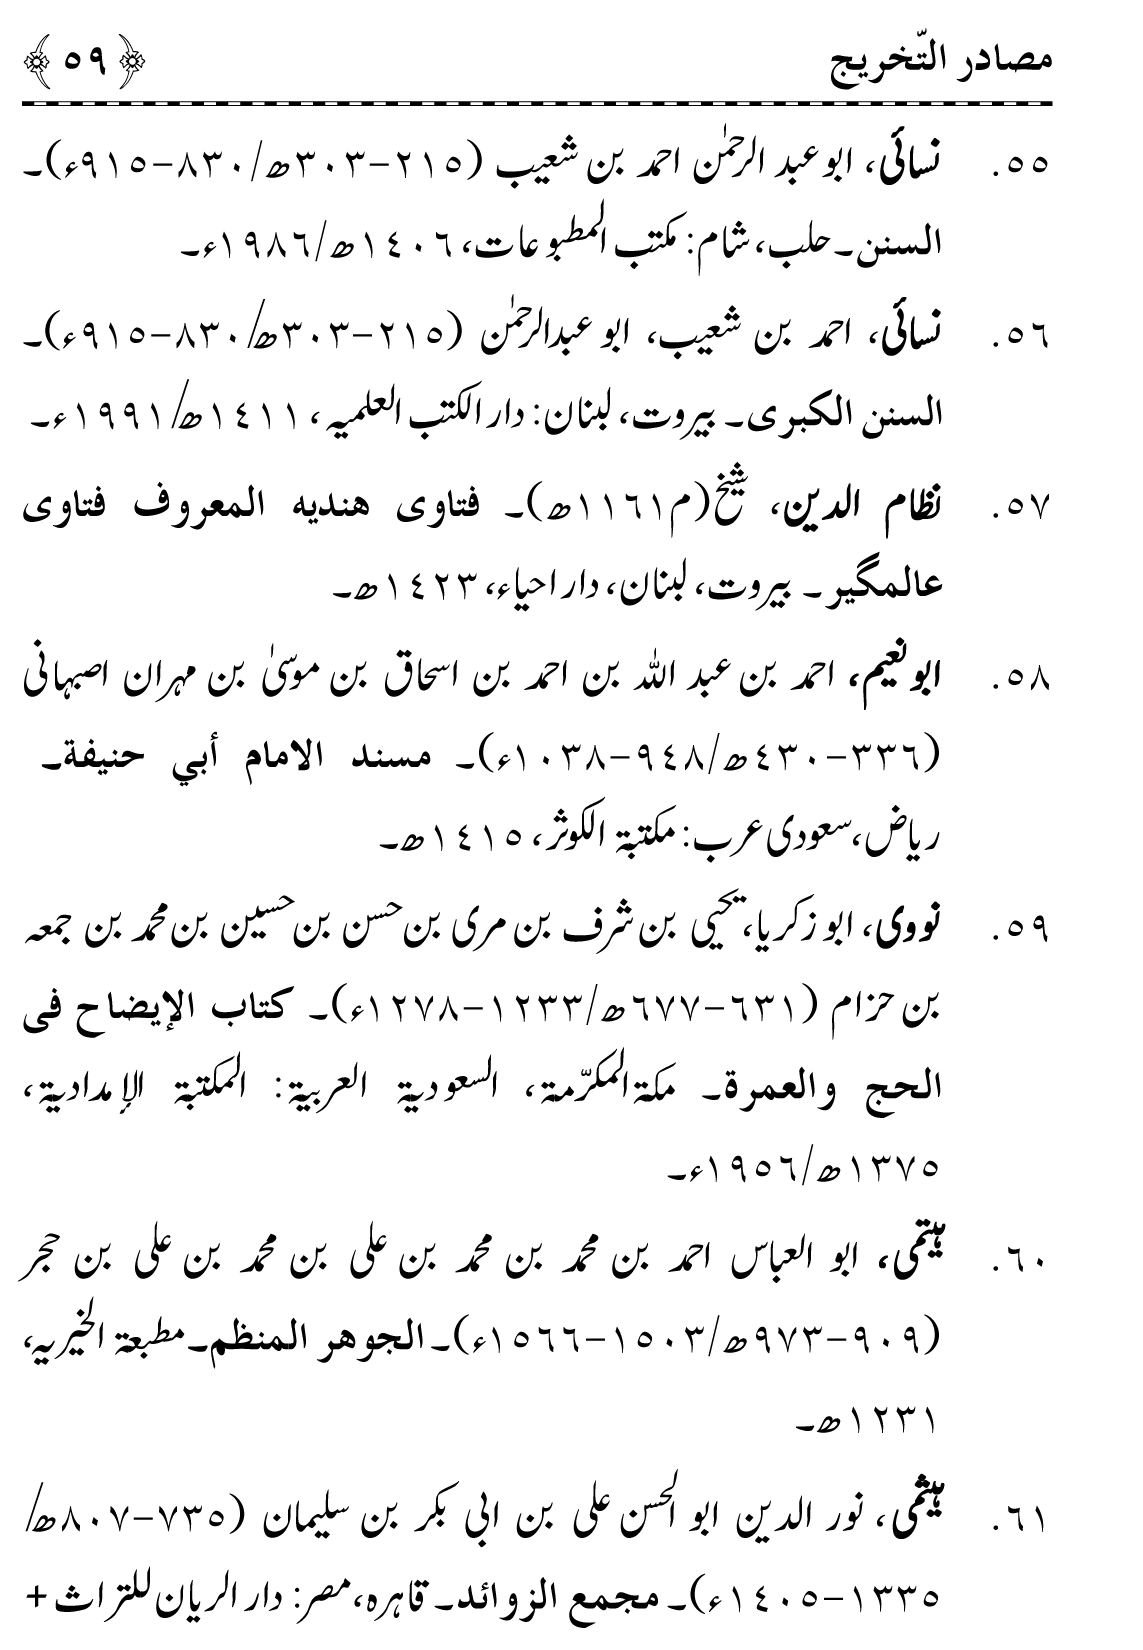 مصادر التّخریج ﴿٥٩﴾
٥٥. نسائی، ابو عبد الرحمٰن احمد بن شعیب (٢١٥-٣٠٣ھ/٨٣٠-٩١٥ء)۔
السنن۔ حلب، شام: مکتب المطبوعات، ١٤٠٦ھ/١٩٨٦ء۔
٥٦. نسائی، احمد بن شعیب، ابو عبدالرحمٰن (٢١٥-٣٠٣ھ/٨٣٠-٩١٥ء)۔
السنن الکبری۔ بیروت، لبنان: دار الکتب العلمیہ، ١٤١١ھ/١٩٩١ء۔
٥٧. نظام الدین، شیخ (م١١٦١ھ)۔ فتاوی هندیه المعروف فتاوی
عالمگیر۔ بیروت، لبنان، دار احیاء، ١٤٢٣ھ۔
٥٨. ابو نعیم، احمد بن عبد اللہ بن احمد بن اسحاق بن موسیٰ بن مہران اصبہانی
(٣٣٦-٤٣٠ھ/٩٤٨-١٠٣٨ء)۔ مسند الامام أبي حنیفة۔
ریاض، سعودی عرب: مکتبۃ الکوثر، ١٤١٥ھ۔
٥٩. نووی، ابو زکریا، یحیی بن شرف بن مری بن حسن بن حسین بن محمد بن جمعہ
بن حزام (٦٣١-٦٧٧ھ/١٢٣٣-١٢٧٨ء)۔ کتاب الإیضاح فی
الحج والعمرة۔ مکۃ المکرّمۃ، السعودیۃ العربیۃ: المکتبۃ الإمدادیۃ،
١٣٧٥ھ/١٩٥٦ء۔
٦٠. ہیتمی، ابو العباس احمد بن محمد بن محمد بن علی بن محمد بن علی بن حجر
(٩٠٩-٩٧٣ھ/١٥٠٣-١٥٦٦ء)۔ الجوهر المنظم۔ مطبعۃ الخیریہ،
١٢٣١ھ۔
٦١. ہیثمی، نور الدین ابو الحسن علی بن ابی بکر بن سلیمان (٧٣٥-٨٠٧ھ/
١٣٣٥-١٤٠٥ء)۔ مجمع الزوائد۔ قاہرہ، مصر: دار الریان للتراث +